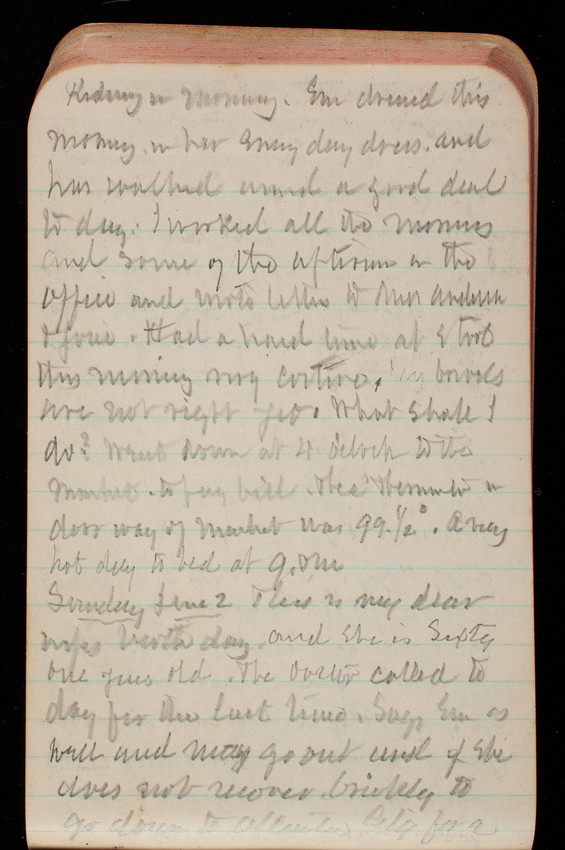 Kidney in morning. Em dressed this
morning in her every day dress. and
has walked around a good deal
to day. I worked all the morning
and some of the afternoon in the
office and wrote letter to Miss Anderson
Had a hard time at Stool
this morning very costive, bowels
are not right yet. What shall I
do? Went down at 4 oclock to the
Market. to pay bill. The Thermometer in
door way of market was 99 1/2°. A very
hot day to bed at 9.
Sunday June 2 This is my dear
wifes birth day. and She is Sixty
one years old. The Doctor called to
day for the last time. Says Em is
well and may go out and if She
does not recover quickly to
go down to Atlantic City for a